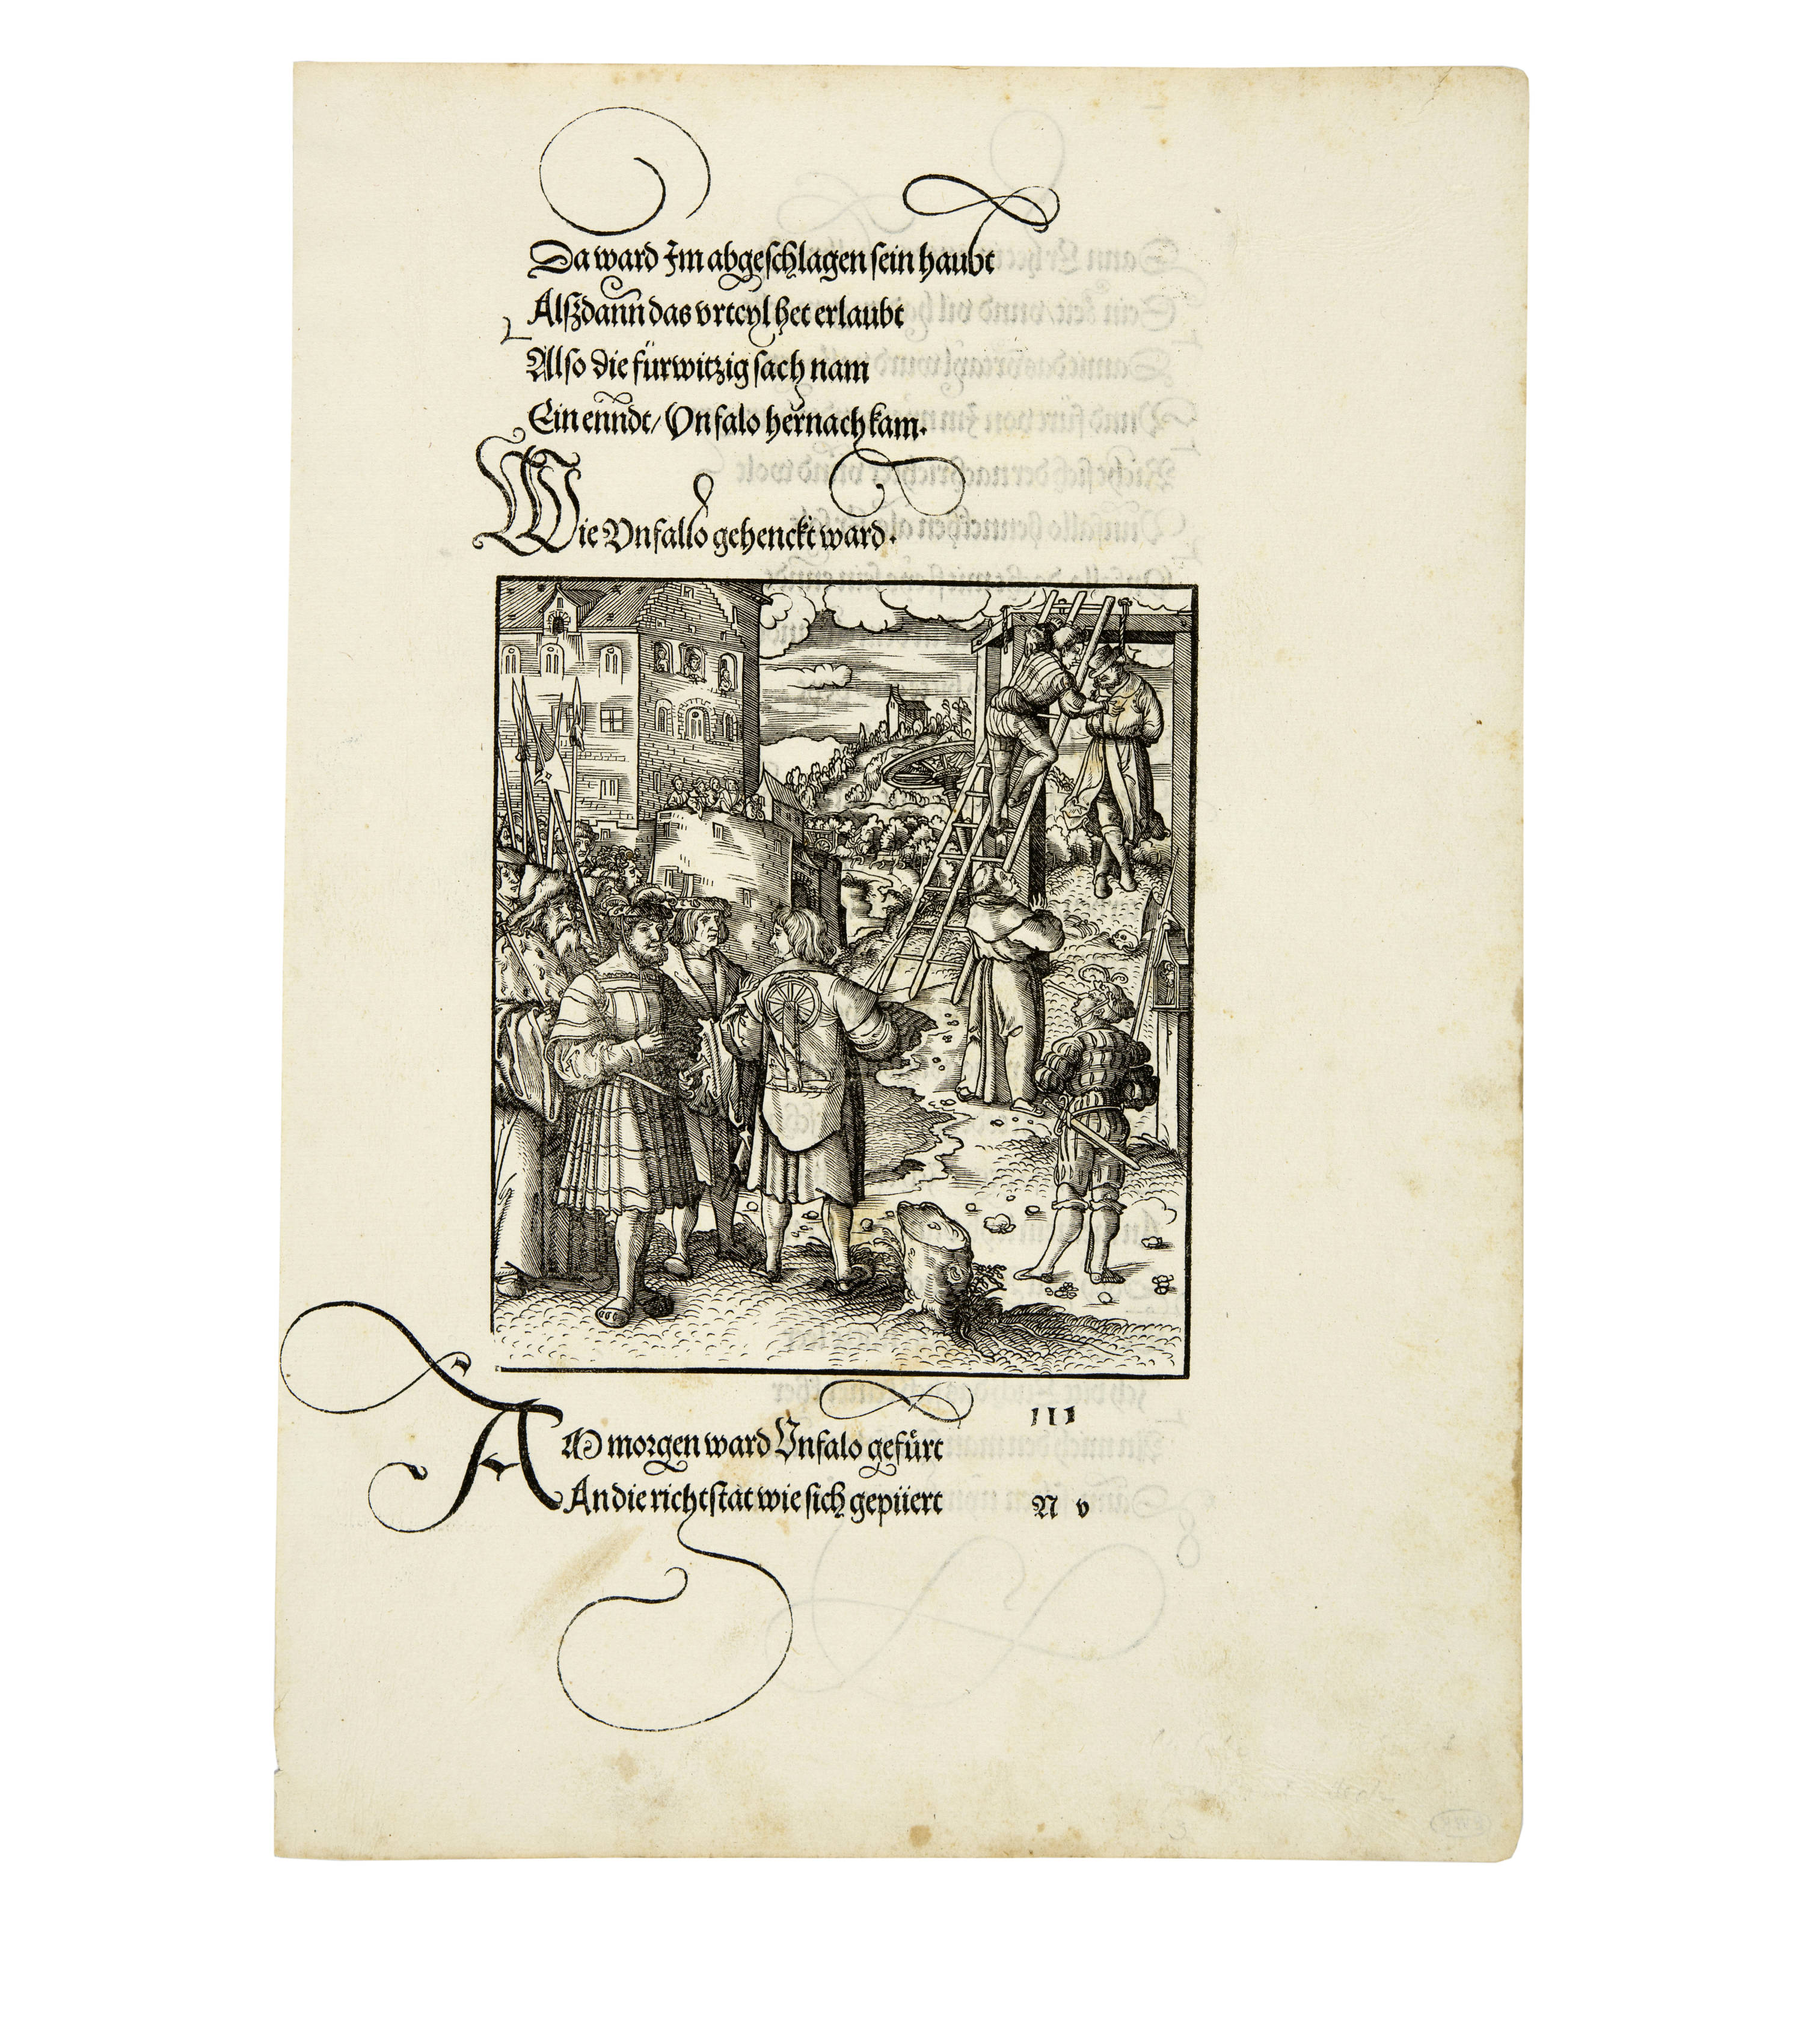 Da ward Im abgeschlagen sein haubt
Alßdann das vrteyl het erlaubt
Also die fürwitzig sach nam
Ein enndt/ Vnfalo hernach kam.
Wie Vnfallo gehenckt ward.
111
AM morgen ward Vnfalo gefürt
An die richtstat wie sich gepüert
N v